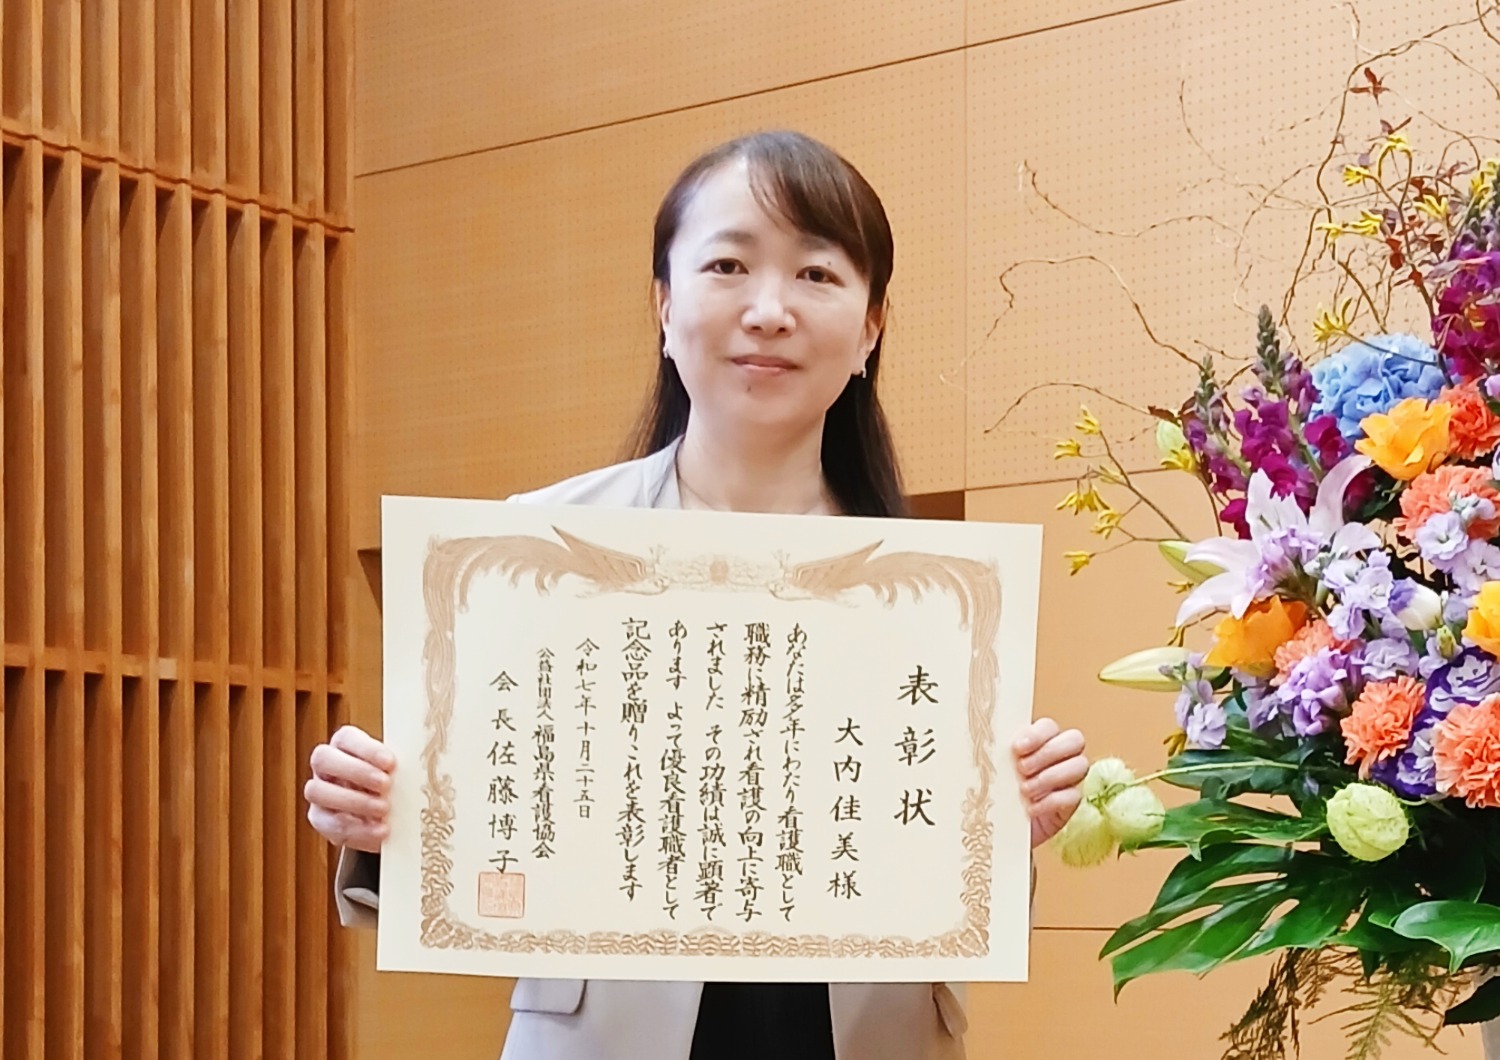 表彰状
大内佳美様
あなたは多年にわたり看護職として
職務に精励され看護の向上に寄与
されました その功績は誠に顕著で
あります よって優良看護職者として
記念品を贈りこれを表彰します
令和七年十月二十五日
公益社団法人 福島県看護協会
会長 佐藤博子